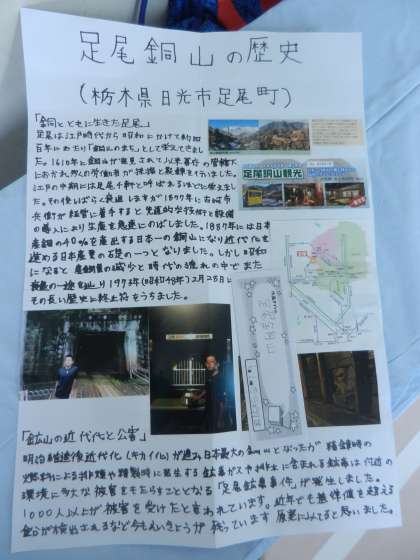 足尾銅山の歴史
(栃木県日光市足尾町)
「銅とともに生きた足尾」
足尾は江戸時代から昭和にかけて約四
百年にわたり「銅山のまち」として栄えてきまし
た。1610年に銅山が発見されて以来幕府の管轄下
におかれ多くの労働者が採掘と製錬を行いました。
江戸の中期には足尾千軒と呼ばれるまでに栄えまし
た。その後しばらく衰退しますが1877年に古河市
兵衛が経営に着手すると先進的な技術と設備
の導入により生産を急速にのばしました。1887年には日本
産銅の40%を産出する日本一の銅山になり近代化を
進める日本産業の礎の一つとなりました。しかし昭和
になると産銅量の減少と時代の流れの中でま
衰退の一途を辿り1973年(昭和48年)2月28日に
その長い歴史に終止符をうちました。
足尾銅山観光
「鉱山の近代化と公害」
明治維新後近代化(キカイ化)が進み日本最大の銅山となったが精錬時の
燃料による排煙や精製時に発生する鉱毒ガスや排水に含まれる鉱毒は付近の
環境に多大な被害をもたらすこととなる「足尾鉱毒事件」が発生しました。
1000人以上が被害を受けたと言われています。近年でも基準値を超える
鉛が検出されるなど今もえいきょうが残っています
と思いました。